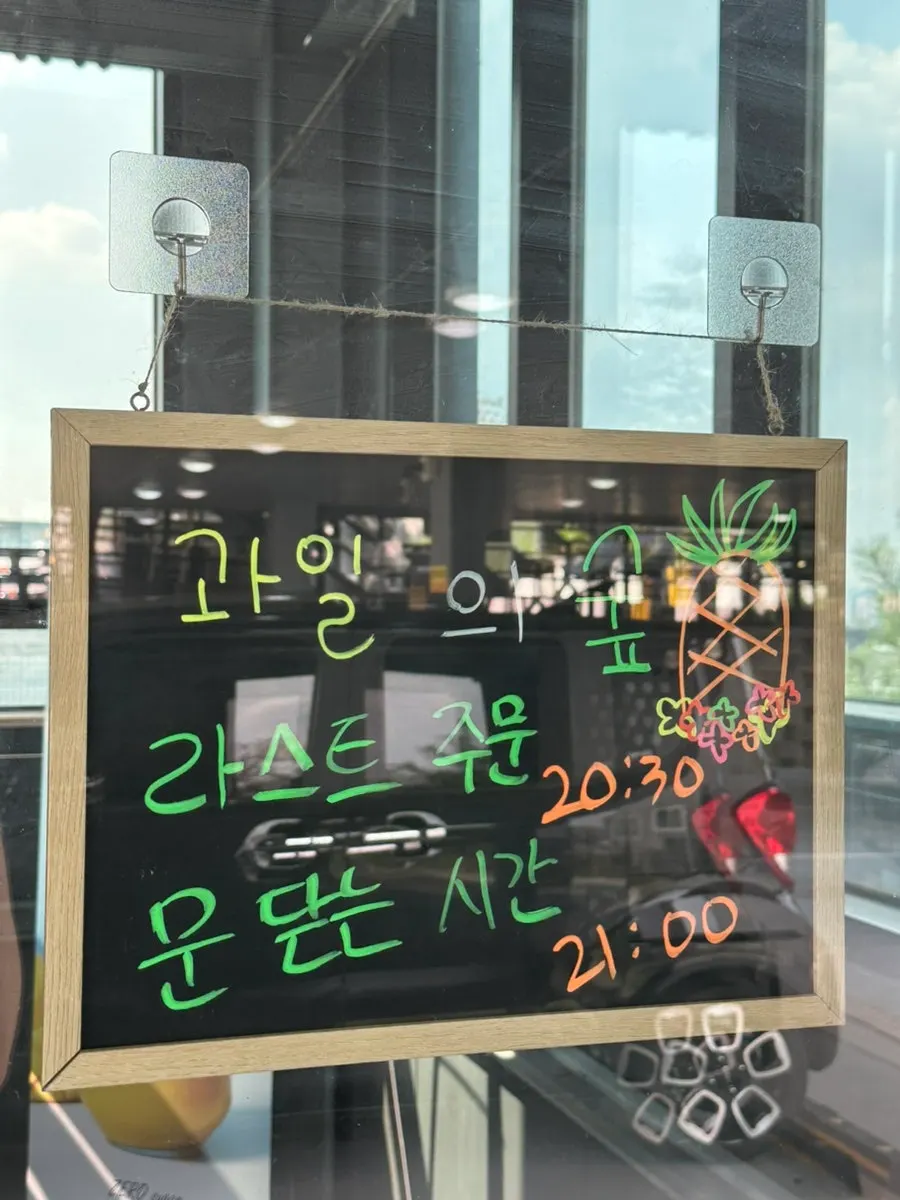 과일 의 숲
라스트 주문 20:30
문 닫는 시간 21:00
ZERO